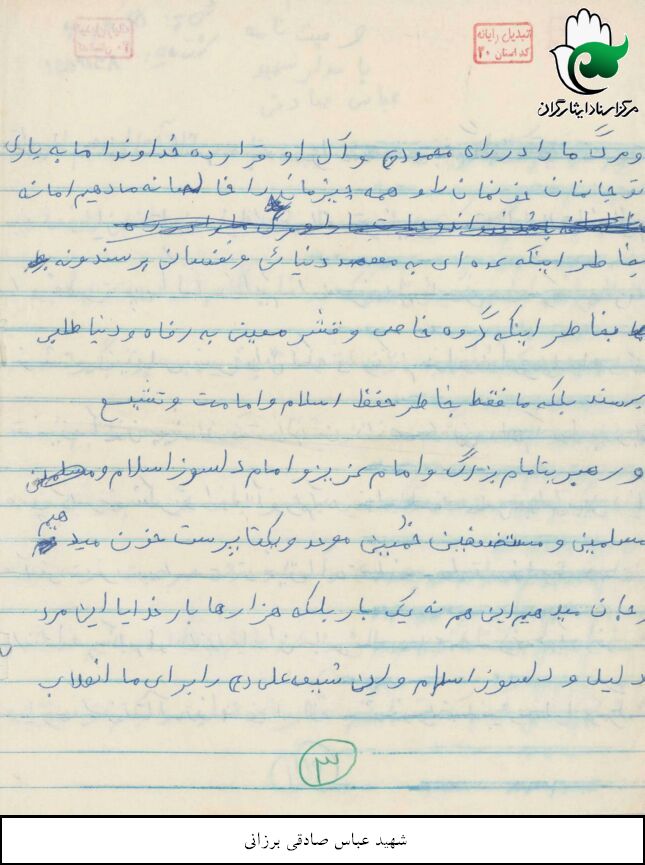 تبدیل رایانه
کد استان ۲۰
مرکز اسناد ایثارگران
وصیت نامه
و مرگ ما را در راه محمد(ص) و آل او قرار ده خداوندا ما به یاری
تو جانمان خونمان را و همه چیزمان را خالصانه میدهیم اما نه
بخاطر اینکه عده ای به مقصد دنیائی و نفسانی برسند و نه
بخاطر اینکه گروه خاصی و قشر معینی به رفاه و دنیا طلبی
برسند بلکه ما فقط بخاطر حفظ اسلام و امامت و تشیع
و رهبریت امام بزرگ و امام عزیز و امام دلسوز اسلام و
مسلمین و مستضعفین خمینی موحد و یکتا پرست خون میدهیم
و جان میدهیم این هم نه یک بار بلکه هزارها بار خدایا این مرد
دلیل و دلسوز اسلام و این شبیه علی (ع) را برای ما انقلاب
۳
شهید عباس صادقی برزانی